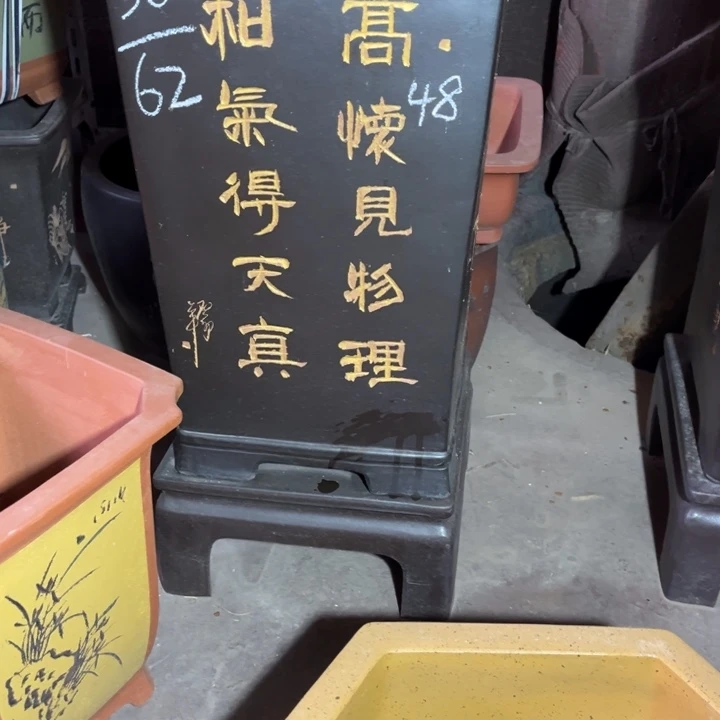 高懷見物理
和氣得天真
48
62